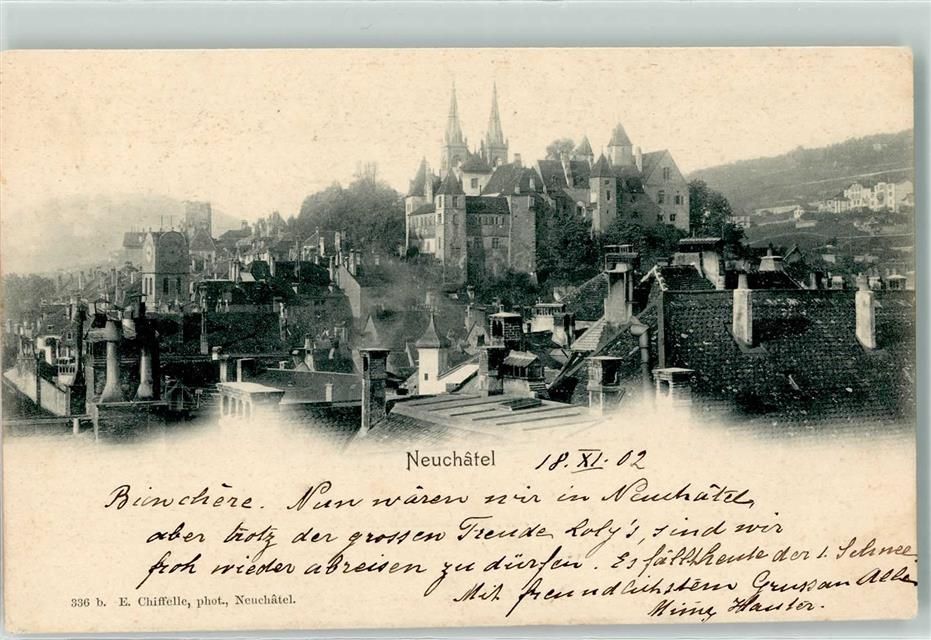 Neuchâtel 18. XI. 02
Bienchère. Nun wären wir in Neuchâtel,
aber trotz der grossen Freude Loly's, sind wir
froh wieder abreisen zu dürfen. Es fällt heute der 1. Schnee
Mit freundlichstem Gruss an Alle
336 b. E. Chiffelle, phot., Neuchâtel.